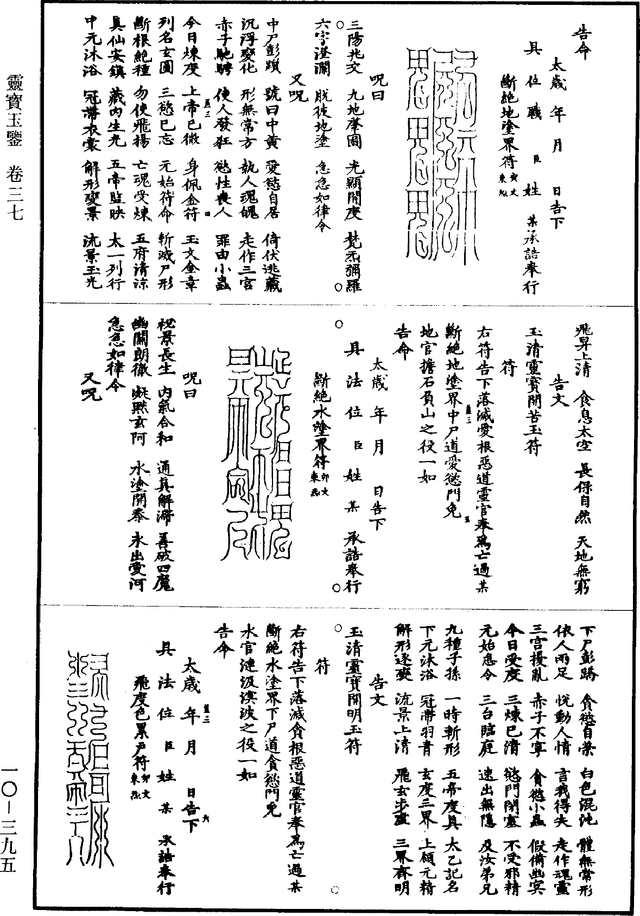 告命
太歲 年 月 日告下
具 位 職 臣 姓 某承誥奉行
斷絕地塗界符
呪曰
三陽兆交 九地肇圓 光顯開度 梵炁彌羅
六宇澄瀾 脫彼地塗 急急如律令
又呪
中尸彭躓 號曰中黃 愛慾自居 倚伏逃藏
沉浮變化 形無常方 執人魂魄 走作三宮
赤子馳騁 使人發狂 慾性喪人 罪由小蟲
今日煉度 上帝已徵 身佩金符 玉文金章
列名玄圖 三慾已忘 元始符命 斬滅尸形
斷根絕種 勿使飛揚 亡魂受煉 五府清涼
真仙安鎮 藏內生光 五帝監映 太一列行
中元沐浴 冠帶衣裳 解形變景 流景玉光
飛昇上清 食息太空 長保自然 天地無窮
告文
玉清靈寶開苦玉符
符
右符告下落滅愛根惡道靈官奉爲亡過某
斷絕地塗界中尸道愛慾門免
地官擔石負山之役一如
告命
太歲 年 月 日告下
具 法 位 臣 姓 某 承誥奉行
斷絕水塗界符
呪曰
祝景長生 內氣合和 通真解滯 善破四魔
幽關朗徹 凝黙玄阿 水塗開泰 永出愛河
急急如律令
又呪
下尸彭蹻 貪慾自榮 白色混沌 體無常形
依人兩足 悅動人情 言我得失 走作魂靈
三宮擾亂 赤子不寧 貪慾小蟲 假備幽冥
今日受度 三煉已清 慾門閉塞 不受邪精
元始急令 三台臨庭 速出無隱 及汝弟兄
九種子孫 一時斬形 五帝度真 太乙記名
下元沐浴 冠帶羽青 玄度三界 上領元精
解形逐變 流景上清 飛玄步虛 三界齊明
告文
玉清靈寶開明玉符
符
右符告下落滅貪根惡道靈官奉爲亡過某
斷絕水塗界下尸道貪慾門免
水官漣汲溟波之役一如
告命
太歲 年 月 日告下
具 法 位 臣 姓 某 承誥奉行
飛度色累戶符
靈寶玉鑒 卷三七
一〇—三九五